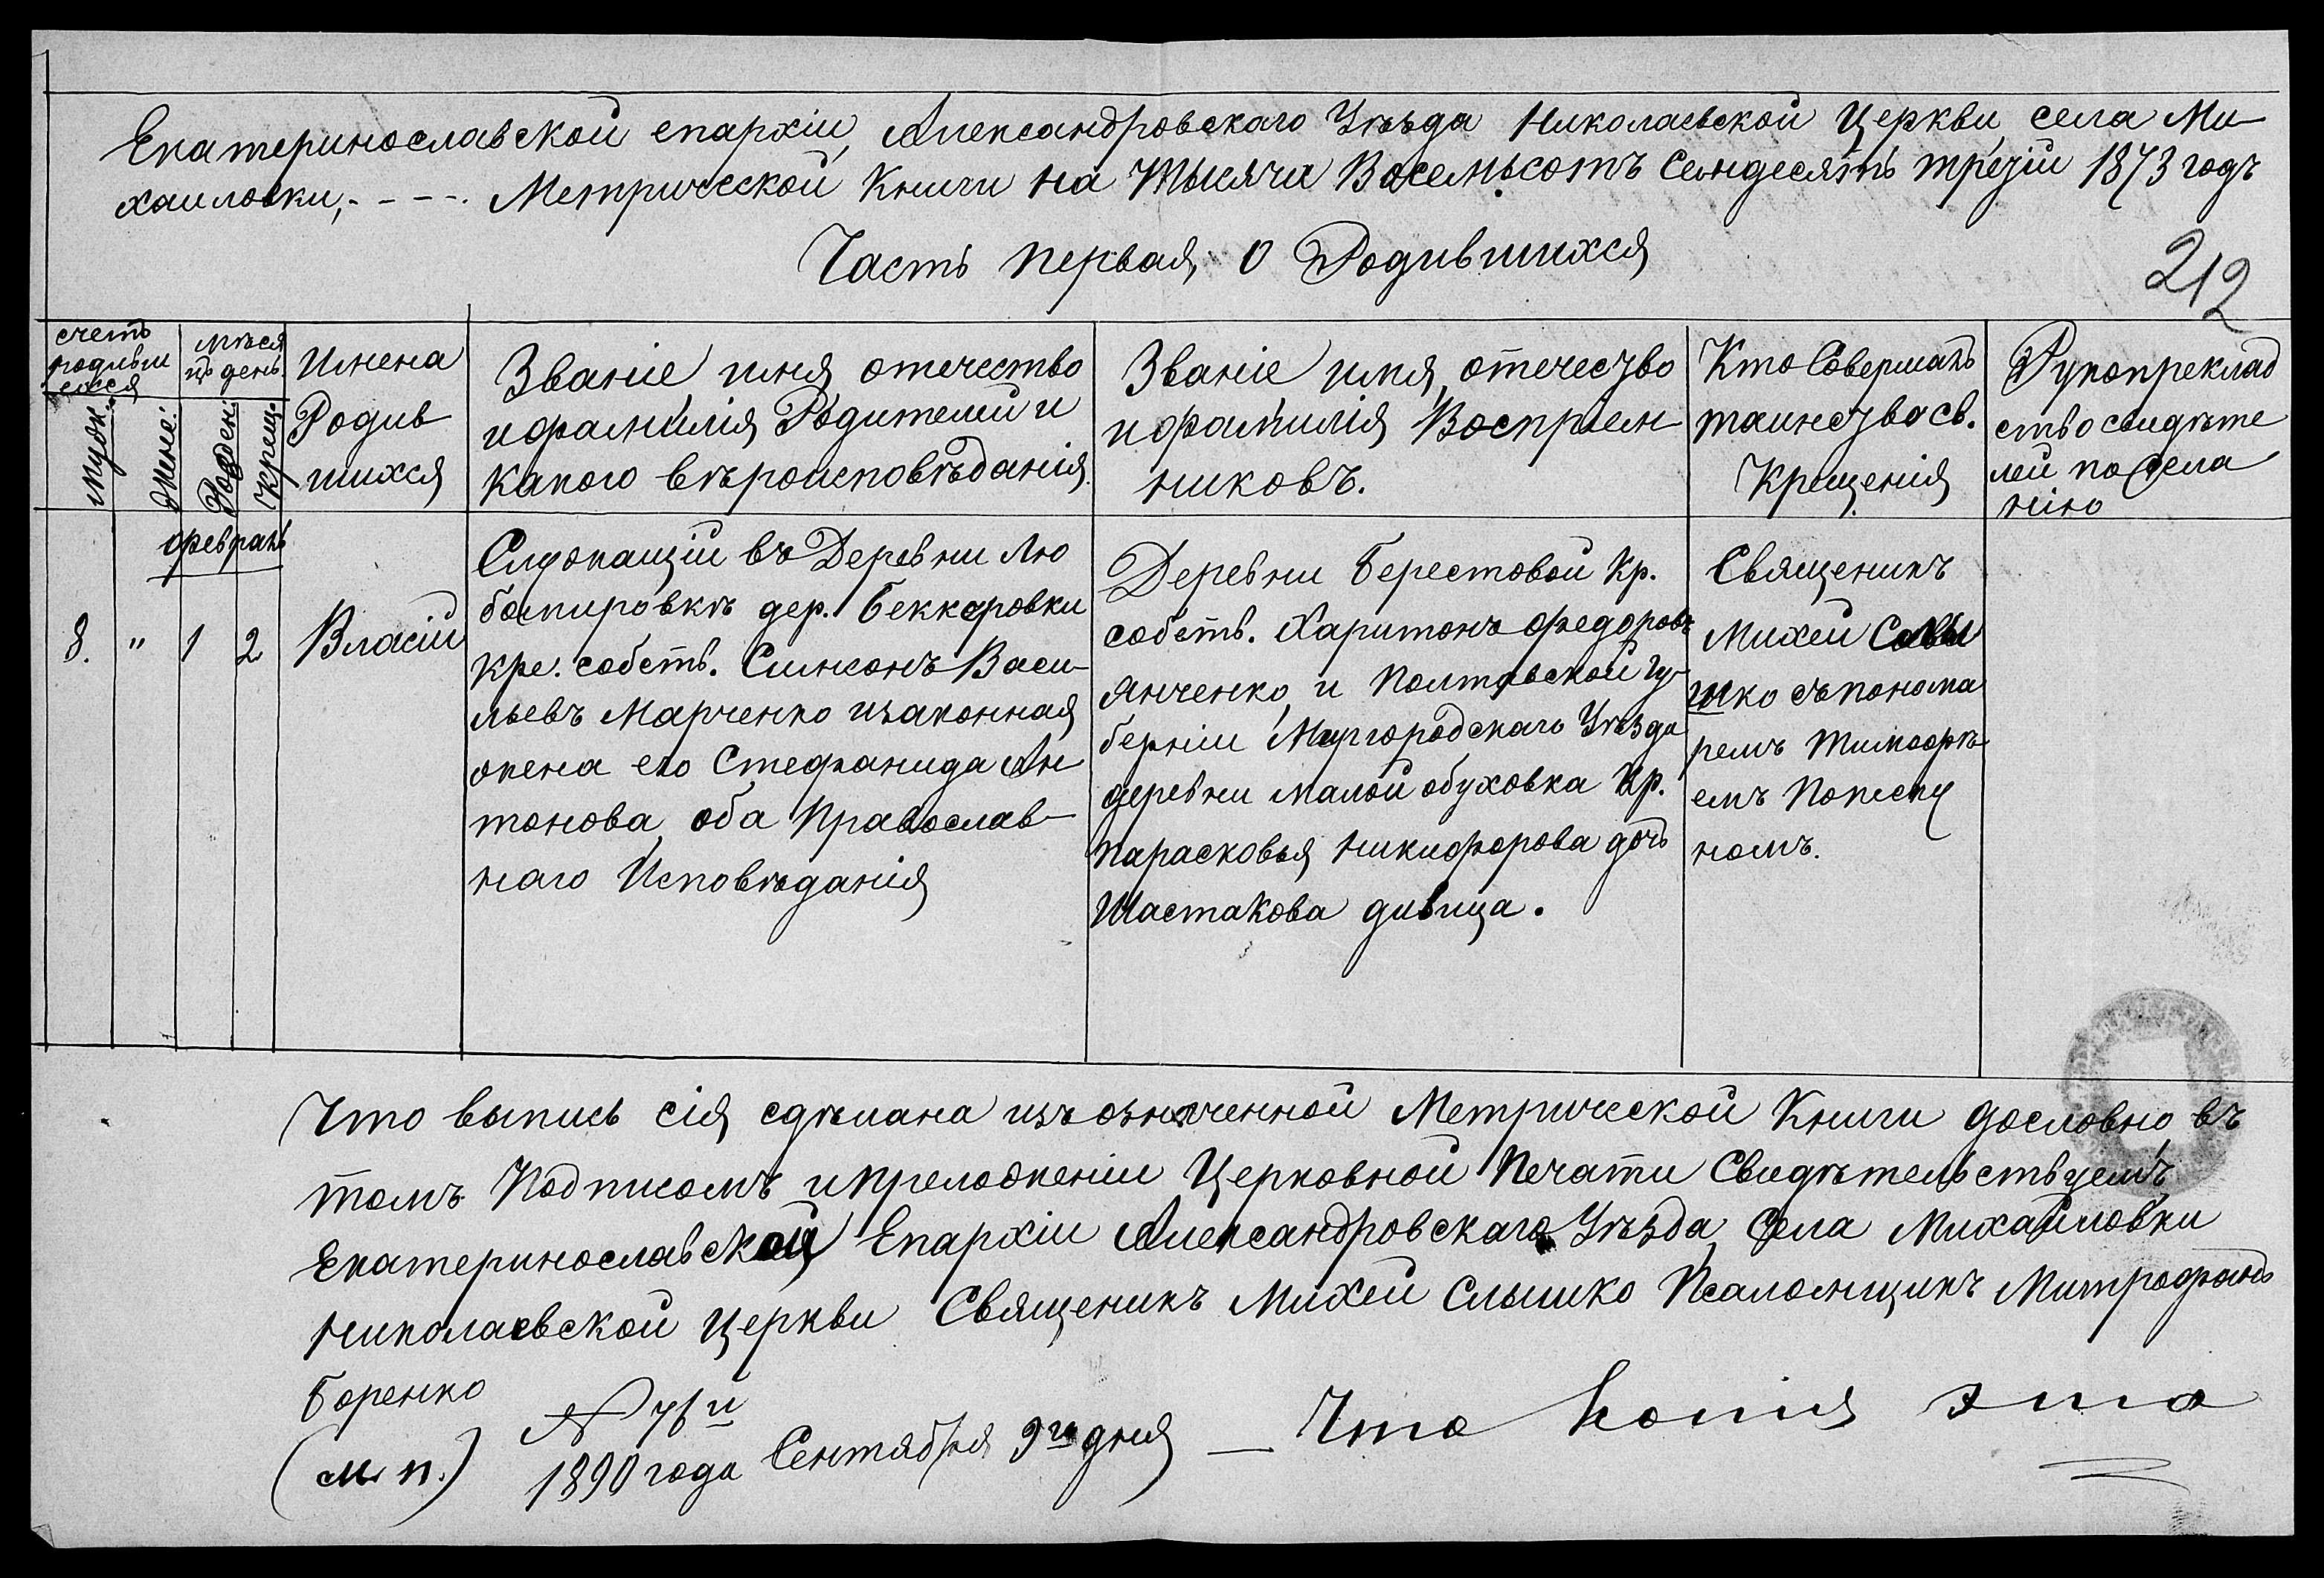 Екатеринославской епархіи, Александровскаго Уѣзда Николаевской Церкви, села Ми-
хаиловки, - - - - Метрической Книги на Тысяча Восемьсотъ Семдесятъ третіи 1873 годъ
Часть первая, о Родившихся
212
счетъ родивши сихся
мѣся цъ день
Имена Родив шихся
Званіе имя, отечество
и фамилія Родителеи и
какого вѣроисповѣданія.
Званіе имя, отечество
и фамилія Воспріем-
никовъ.
Кто Совершалъ
таинство св.
Крещенія
Рукопреклад
ство свидѣте
леи по жела
нію
Муж.
Жене.
Рожден.
Крещ.
февраль
8. " 1 2 Власіи
Служащіи въ Деревни Лю
бомировкѣ дер. Беккеровки
кре. собств. Симеонъ Васи-
льевъ Марченко изаконная
жена его Стефанида Ан
тонова, оба Православ-
наго Исповѣданія
Деревни Берестовои Кр.
собств. Харитонъ Федоровъ
Янченко, и Полтавскои гу-
берніи Миргородскаго Уѣзда
деревни малои обуховка Кр.
Парасковья Никифорова дочь
Шастакова дивица.
Священикъ
Михеи Слы
шко съ понома
ремъ Тимофѣ
емъ
номъ.
Что выпись сія сдѣлана изъ означенной Метрической Книги дословно, въ
томъ Подписомъ и преложеніи Церковной Печати Свидѣтельствуемъ,
Екатеринославской Епархіи Александровскаго Уѣзда, Села Михайловки
Николаевской Церкви Священикъ Михеи Слышко Псаломщикъ Митрофанъ
Боренко
(м. п.)
№ 76й
1890 года Сентября 9го дня — Что копія эта